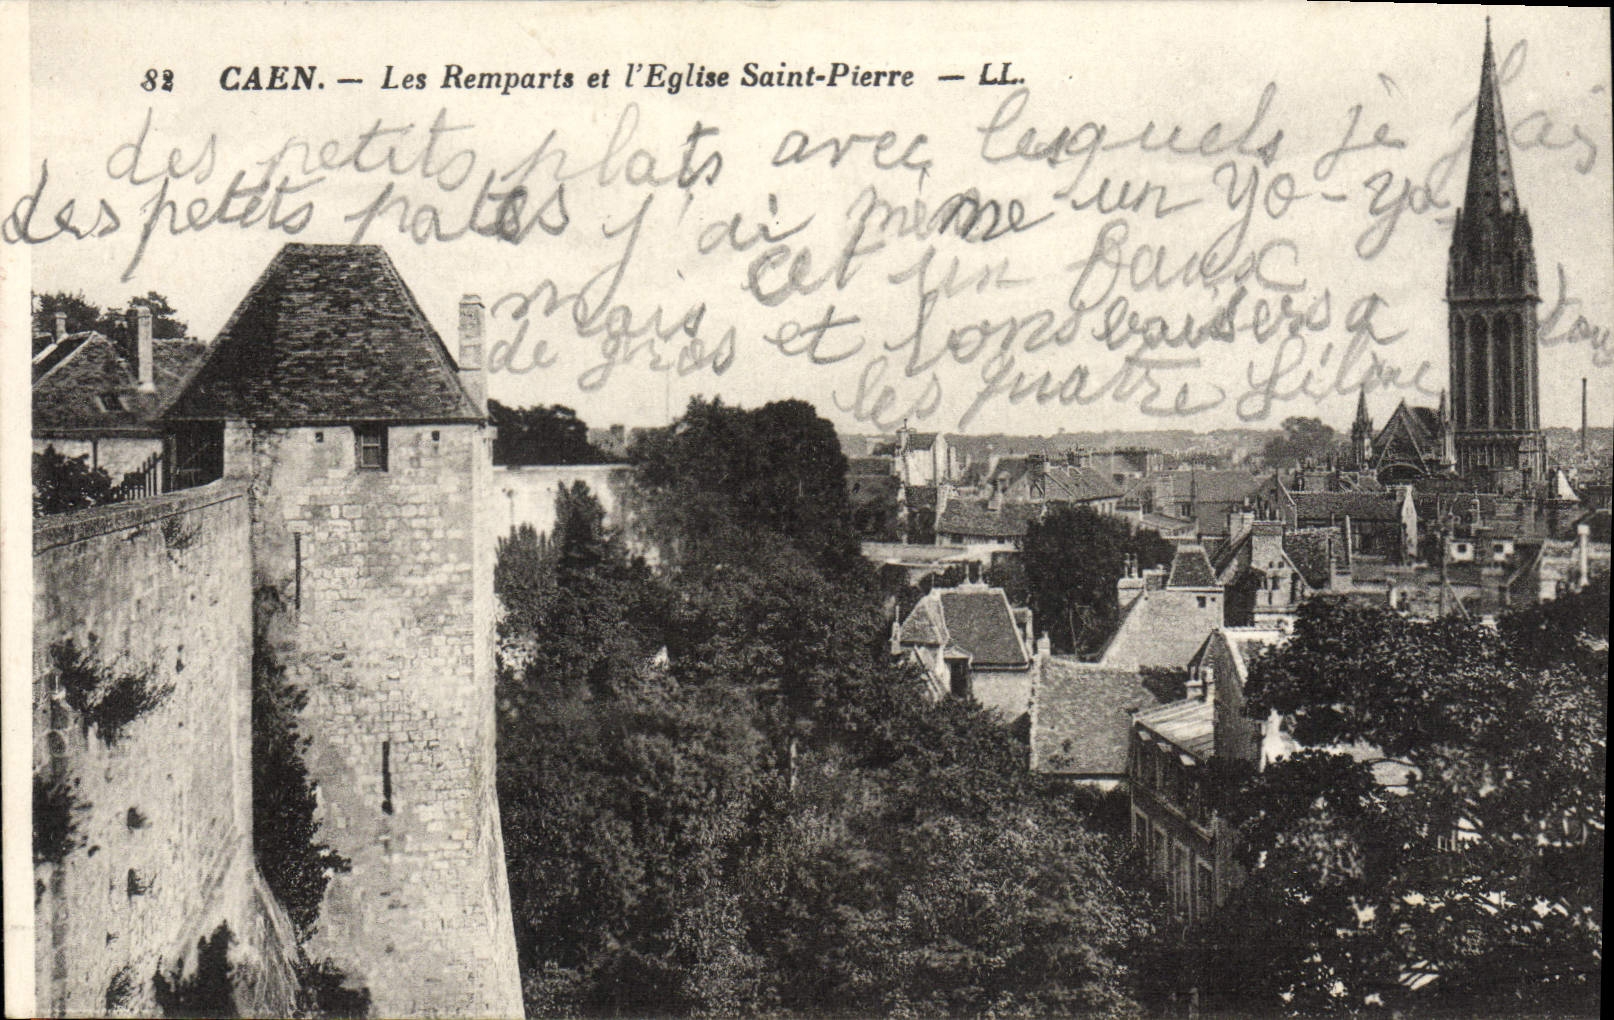 82 CAEN. — Les Remparts et l'Eglise Saint-Pierre — LL.
des petits plats avec lesquels je fais
des petits pates j'ai même un yo-yo
mais cet un
de gros et bons baisers a tous
les quatre Hélène